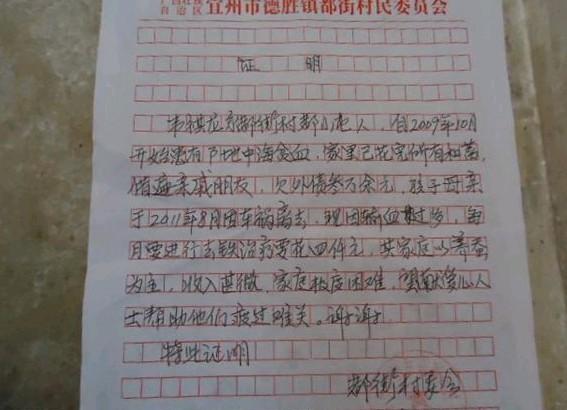 广西壮族
自治区 宜州市德胜镇都街村民委员会
证 明
韦祺花系都街村都屯人，自2009年10月
开始患有户地中海贫血，家里已花完所有积蓄，
借遍亲戚朋友，欠外债叁万余元，孩子母亲
于2011年8月因车祸离去，现因输血过多，每
月要进行去铁治疗要花四仟元，其家庭以养蚕
为主，收入甚微，家庭极度困难，望献爱心人
士帮助他们度过难关。谢谢
特此证明
都街村委会